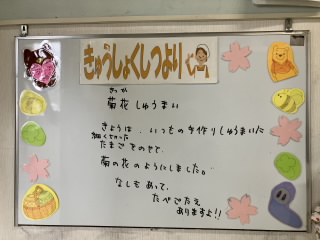 きゅうしょくしつより
きっか
菊花しゅうまい
きょうは、いつもの手作りしゅうまいに
細くきった
たまごをのせて、
菊の花のようにしました。
なしもあって、
たべごたえ
ありますよ!!